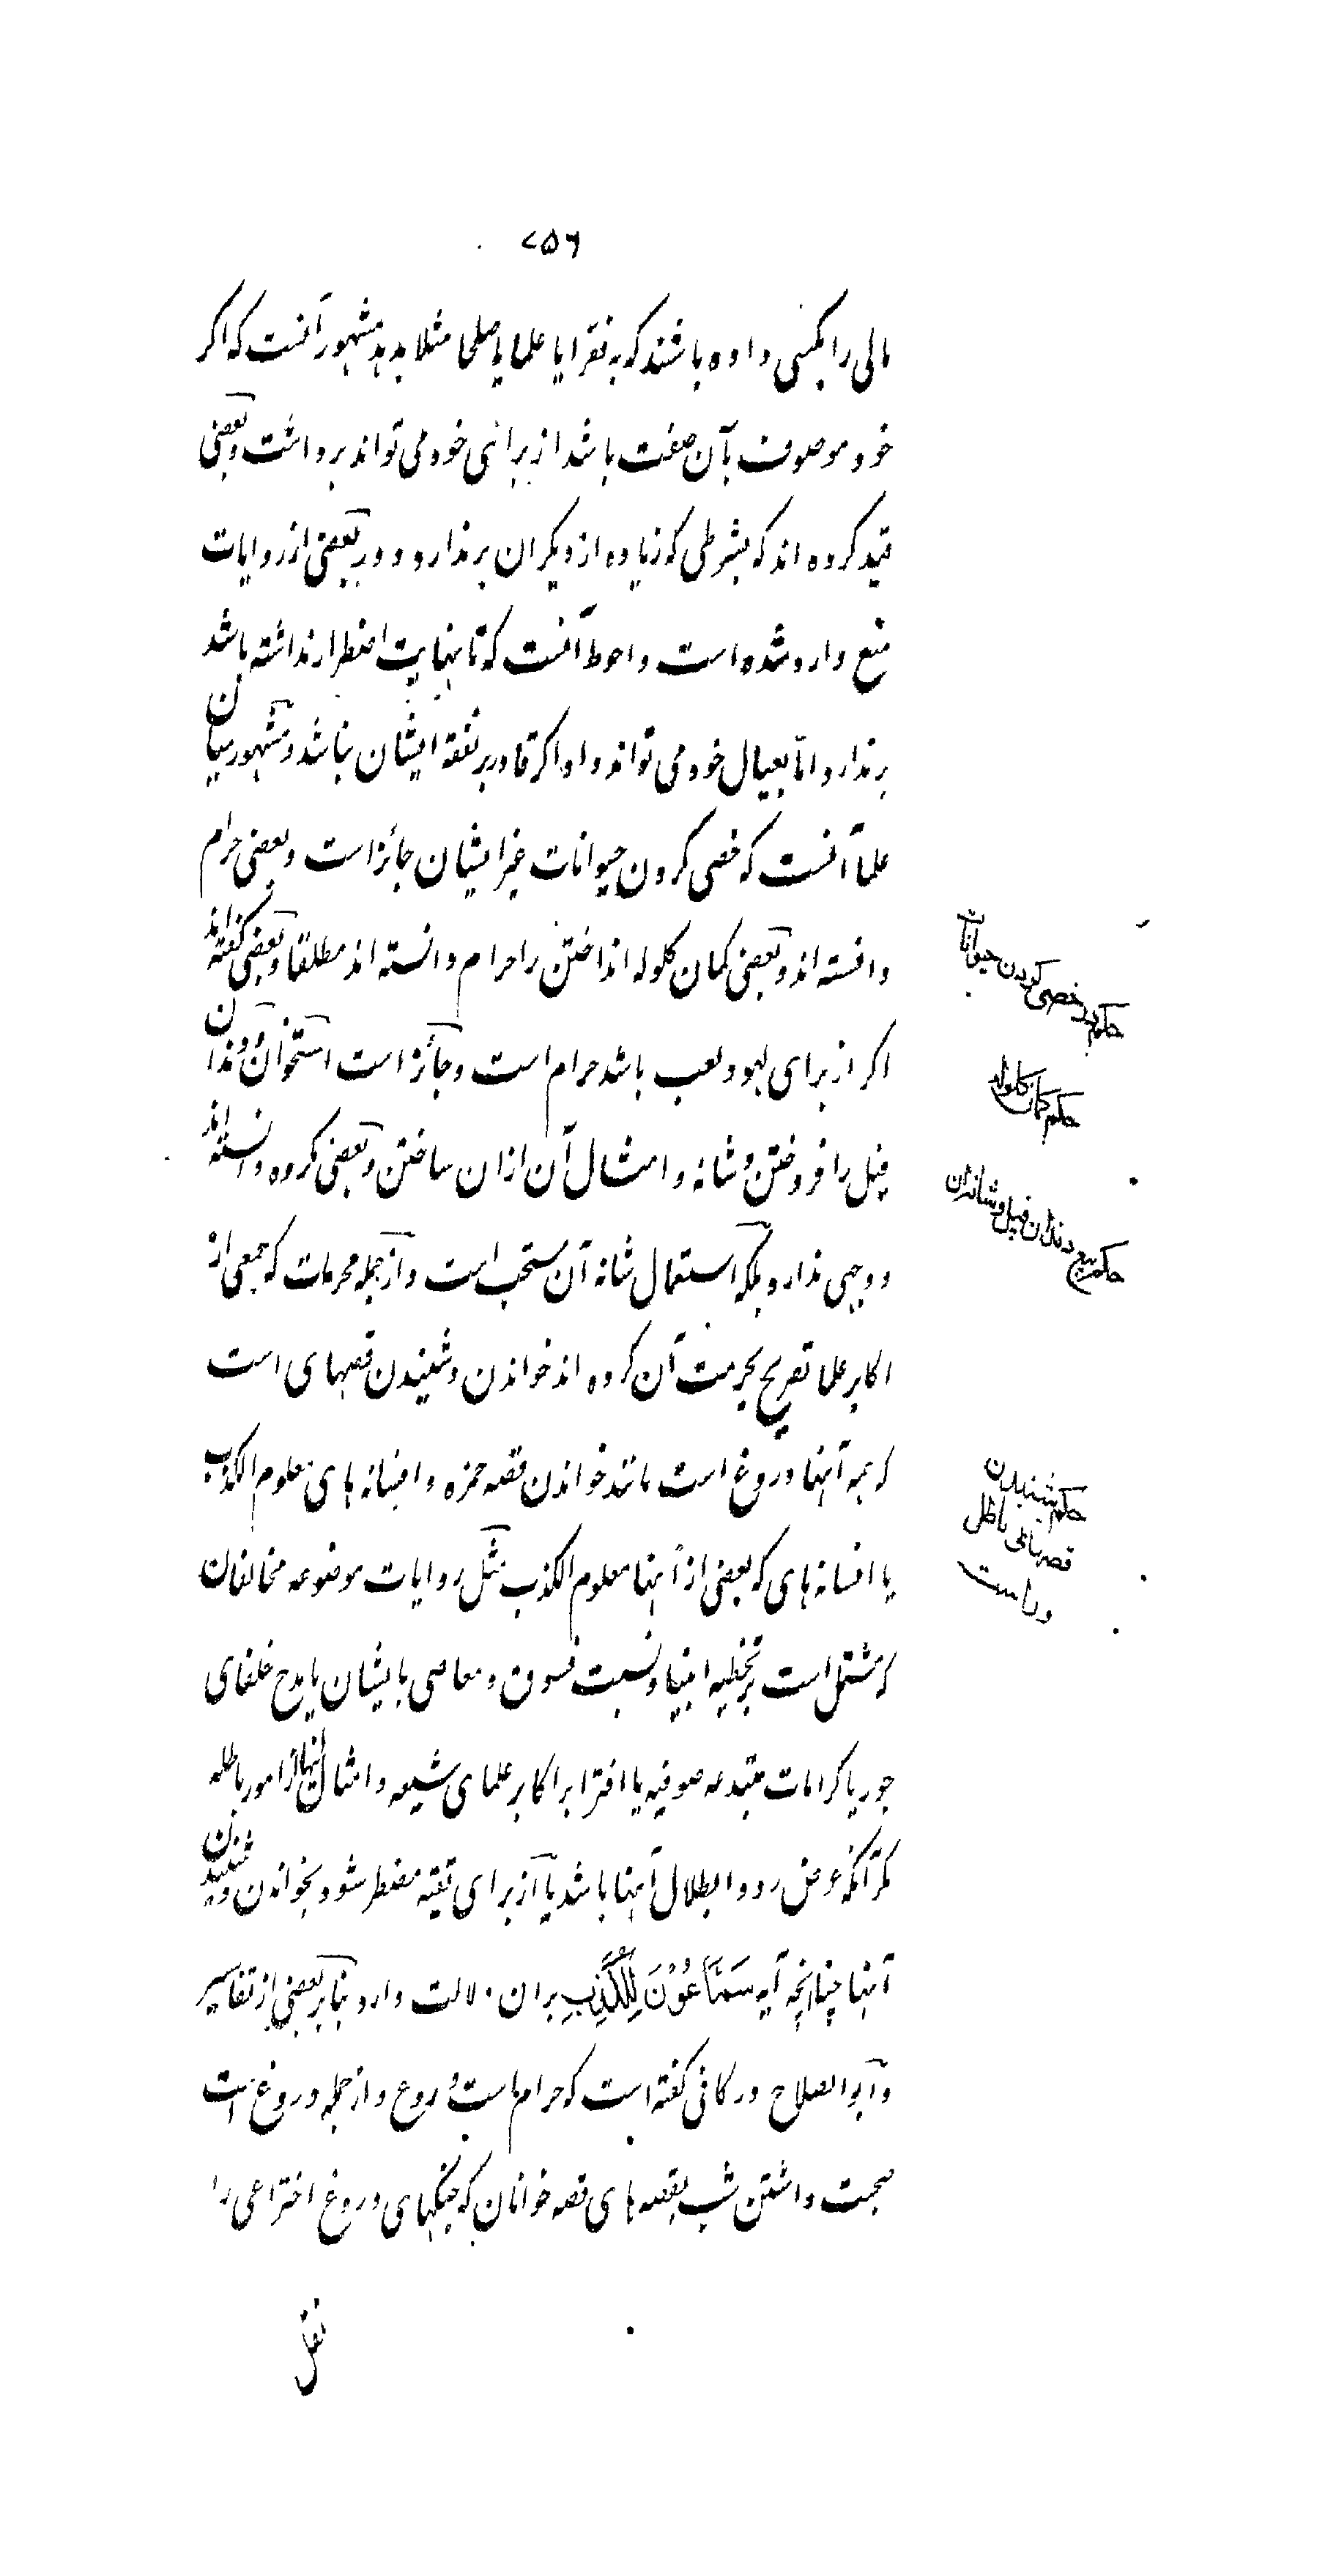 ۷۵۶
مالی را بکسی داده باشند که بفقرا یا علما یا صلحا مثلا بدهد مشهور آنست که اگر
خود موصوف بآن صفت باشد از برای خود می تواند برداشت و بعضی
قید کرده اند که بشرطی که زیاده از دیگران برندارد و در بعضی از روایات
منع وارد شده است و احوط آنست که تا بنهایت اضطرار نداشته باشد
برندارد و امّا بعیال خود می تواند داد اگر قادر بر نفقه ایشان نباشد و مشهور میان
علما آنست که خصی کردن حیوانات غیر ایشان جائز است و بعضی حرام
دانسته اند و بعضی کمان کلوله انداختن را حرام دانسته اند مطلقا و بعضی گفته اند
اگر از برای لهو و لعب باشد حرام است و جائز است استخوان و دندان
فیل را فروختن و شانه و امثال آن ازان ساختن و بعضی مکروه دانسته اند
و وجهی ندارد بلکه استعمال شانه آن مستحب است و از جمله محرمات که جمعی از
اکابر علما تصریح بحرمت آن کرده اند خواندن و شنیدن قصهای است
که همه آنها دروغ است مانند خواندن قصه حمزه و افسانه های معلوم الکذب
یا افسانه های که بعضی از آنها معلوم الکذب مثل روایات موضوعه مخالفان
که مشتمل است بر تخطیه انبیا و نسبت فسوق و معاصی بایشان یا مدح خلفای
جور یا کرامات مبتدعه صوفیه یا افترا بر اکابر علمای شیعه و امثال اینها از امور باطله
مگر آنکه غرض رد و ابطال آنها باشد یا از برای تقیه مضطر شود بخواندن و شنیدن
آنها چنانچه آیه سَمَّاعُوْنَ لِلْكَذِبِ بران دلالت دارد بنا بر بعضی از تفاسیر
و ابو الصلاح در کافی گفته است که حرام است دروغ و از جمله دروغ است
صحبت داشتن شب بقصه های قصه خوانان که جنگهای دروغ اختراعی را
نقل
حکم در خصی کردن حیوانات
حکم کمان کلوله
حکم بیع دندان فیل و شانه ان
حکم شنیدن
قصهای باطل
و راست